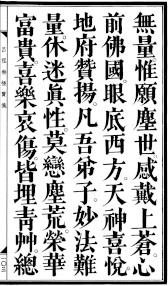 無量惟願塵世感戴上蒼心
前佛國眼底西方天神喜悅
地府贊揚凡吾弟子妙法難
量休迷真性莫戀塵荒榮華
富貴喜樂哀傷皆埋青艸總
一〇三